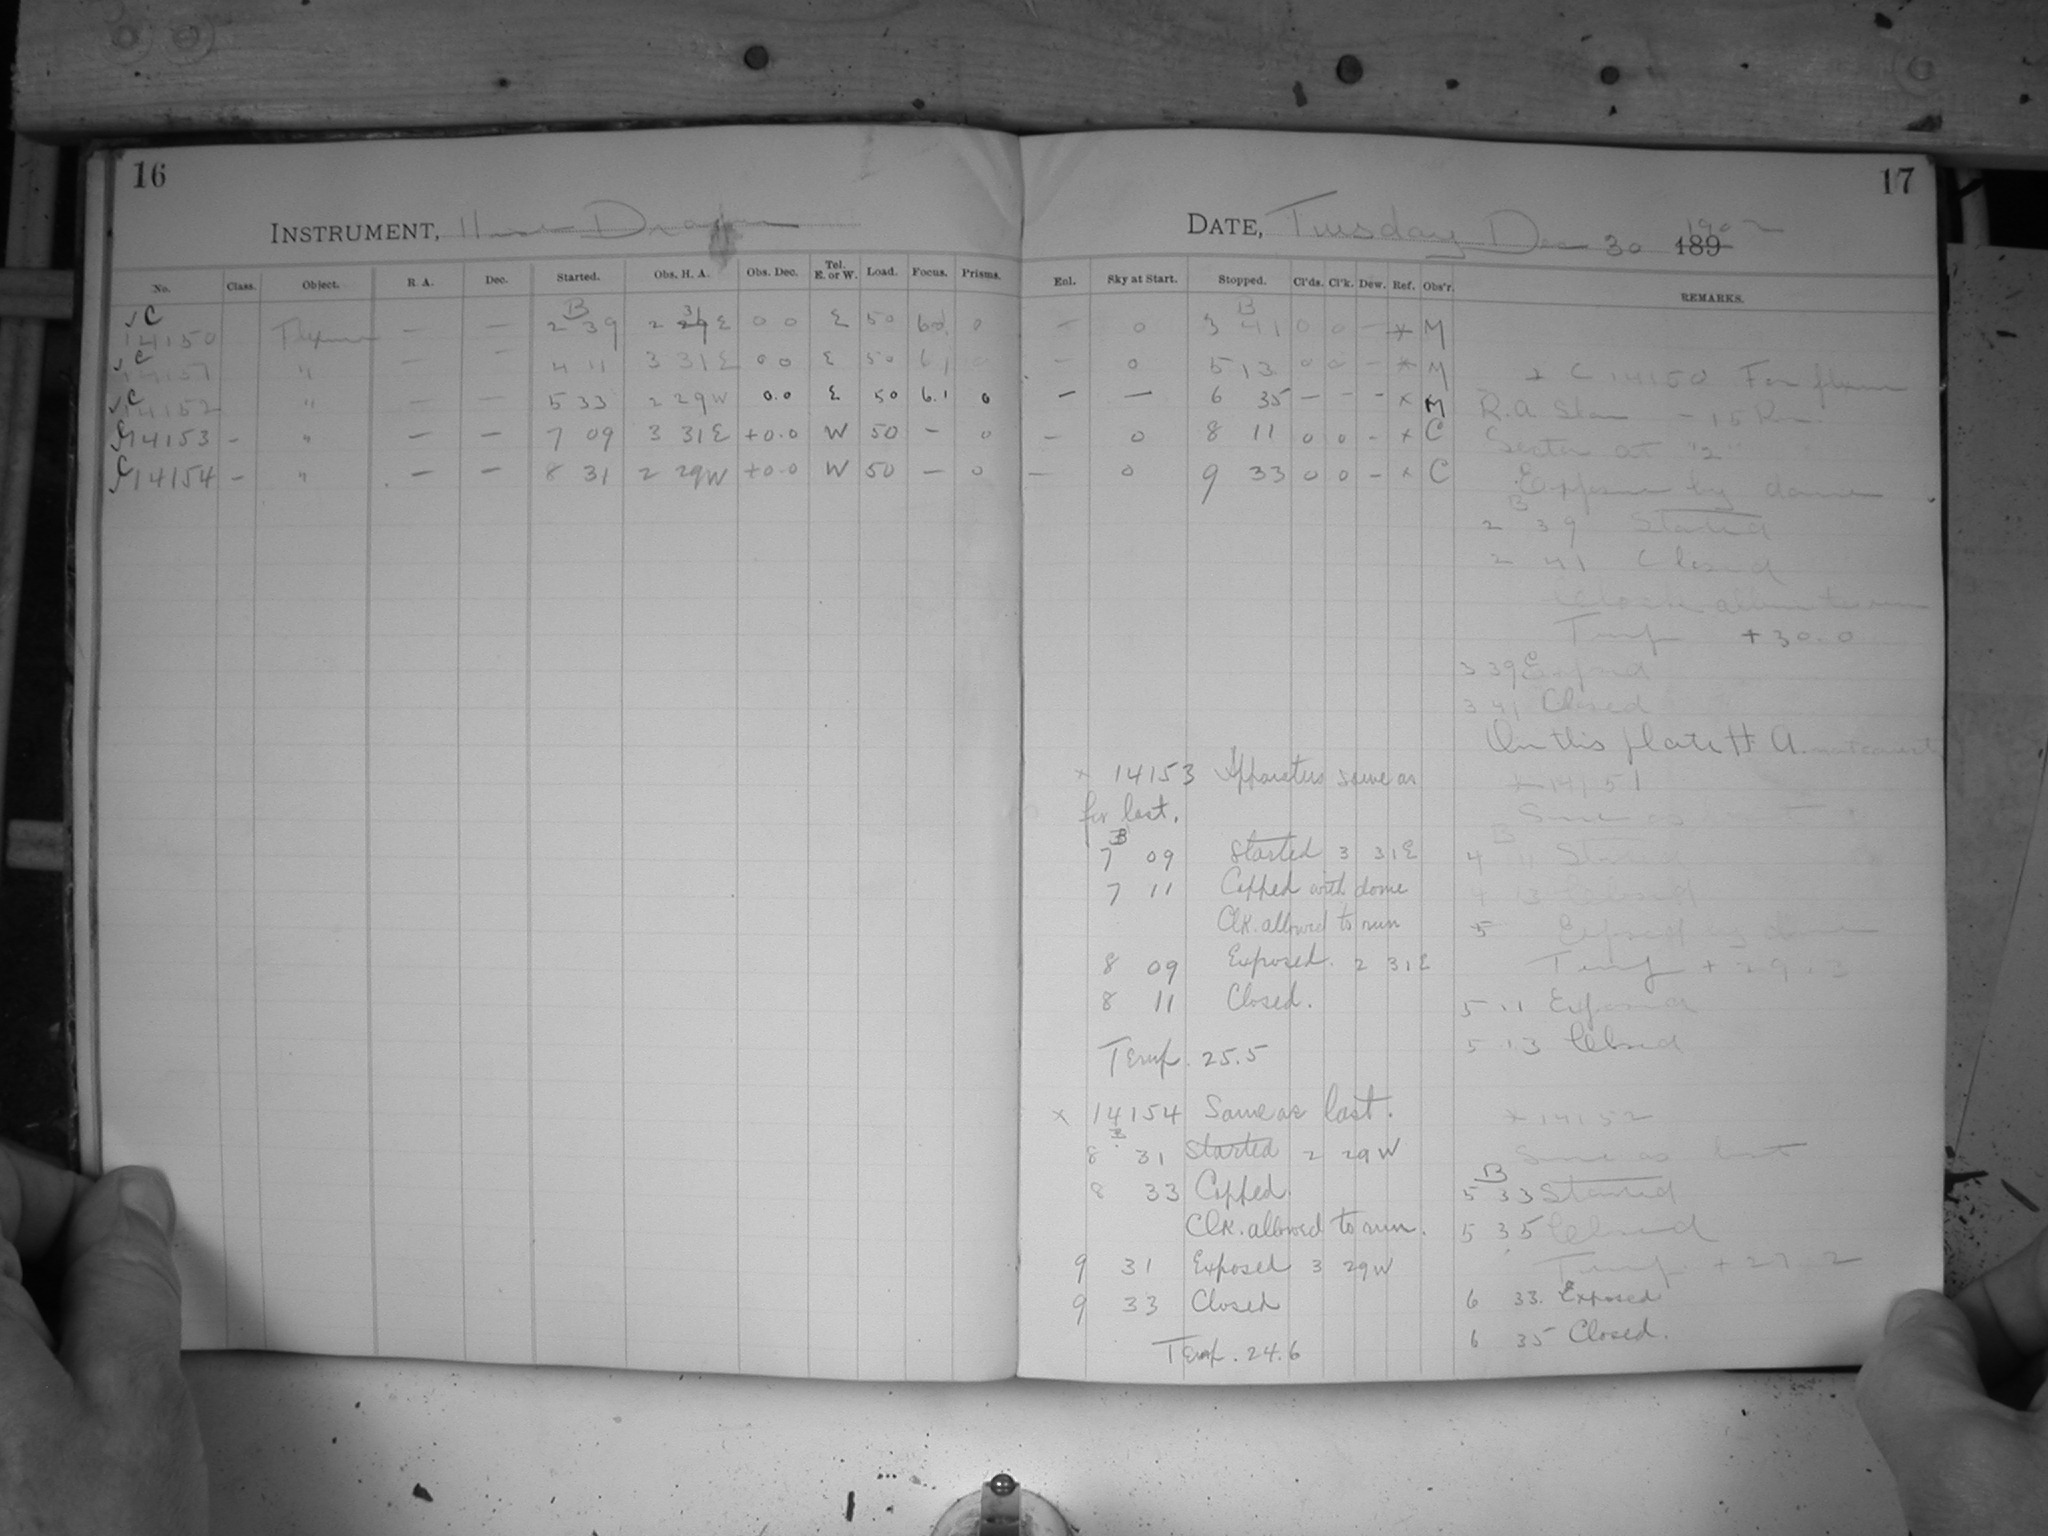 16
INSTRUMENT, Draper
No. Class. Object. R. A. Dec. Started. Obs. H. A. Obs. Dec. Tel. E. or W. Load. Focus. Prisms.
√C 14150 Flexure — — B 2 39 2 31 29 E 0 0 E 50 6.0 0
√C 14151 " — — 4 11 3 31 E 0 0 E 50 6.1 0
√C 14152 " — — 5 33 2 29 W 0.0 E 50 6.1 0
C 14153 – " — — 7 09 3 31 E +0.0 W 50 — 0
C 14154 – " — — 8 31 2 29 W +0.0 W 50 — 0
17
DATE, Tuesday Dec 30 189 1902
Enl. Sky at Start. Stopped. Cl'ds. Cl'k. Dew. Ref. Obs'r. REMARKS.
– 0 B 3 41 0 0 – × M
– 0 5 13 0 0 – × M
— — 6 35 — – – × M
— 0 8 11 0 0 – × C
— 0 9 33 0 0 – × C
× C 14150 For flexure
R.A. Slow – 15 Rev.
Sector at "2"
Exposure by dome
B
2 39 Started
2 41 Closed
Clock allowed to run
Temp +30.0
3 39 Exposed
3 41 Closed
On this plate H. A.
× 14151
Same as last
B
4 11 Started
4 13 Closed
5 Exposed by dome
Temp + 29.3
5 11 Exposed
5 13 Closed
× 14152
Same as last
B
5 33 Started
5 35 Closed
Temp. + 27.2
6 33. Exposed
6 35 Closed.
× 14153 Apparatus same as
for last.
B
7 09 Started 3 31 E
7 11 Capped with dome
Clk. allowed to run
8 09 Exposed. 2 31 E
8 11 Closed.
Temp. 25.5
× 14154 Same as last.
B
8 31 Started 2 29 W
8 33 Capped.
Clk. allowed to run.
9 31 Exposed 3 29 W
9 33 Closed
Temp. 24.6